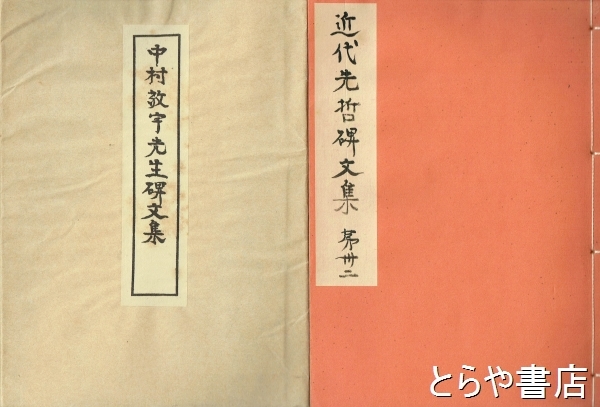 近代先哲碑文集 第卅二
中村敬宇先生碑文集
とらや書店